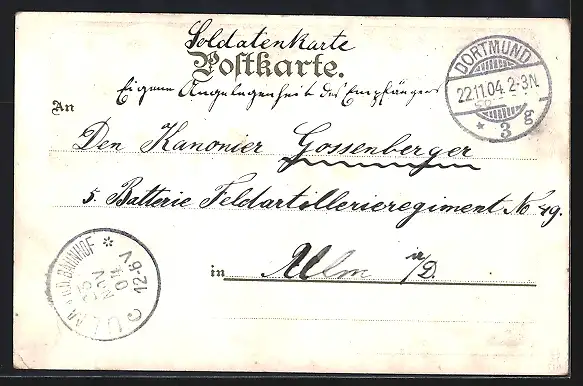 Soldatenkarte
Postkarte.
Eigene Angelegenheit des Empfängers
DORTMUND
22.11.04. 2-3N
* 3 g
An
Den Kanonier Gossenberger
5. Batterie Feldartillerieregiment No 49.
in Ulm a/D.
ULM a.D. BAHNHOF *
NOV
04
12-9 V